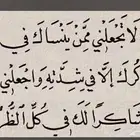 لَا تَجْعَلْنِي مِمَّنْ يَنْسَاكَ فِي
كُرُكَ إِلَّا فِي شِدَّتِهِ وَاجْعَلْنِي
شَاكِرًا لَكَ فِي كُلِّ